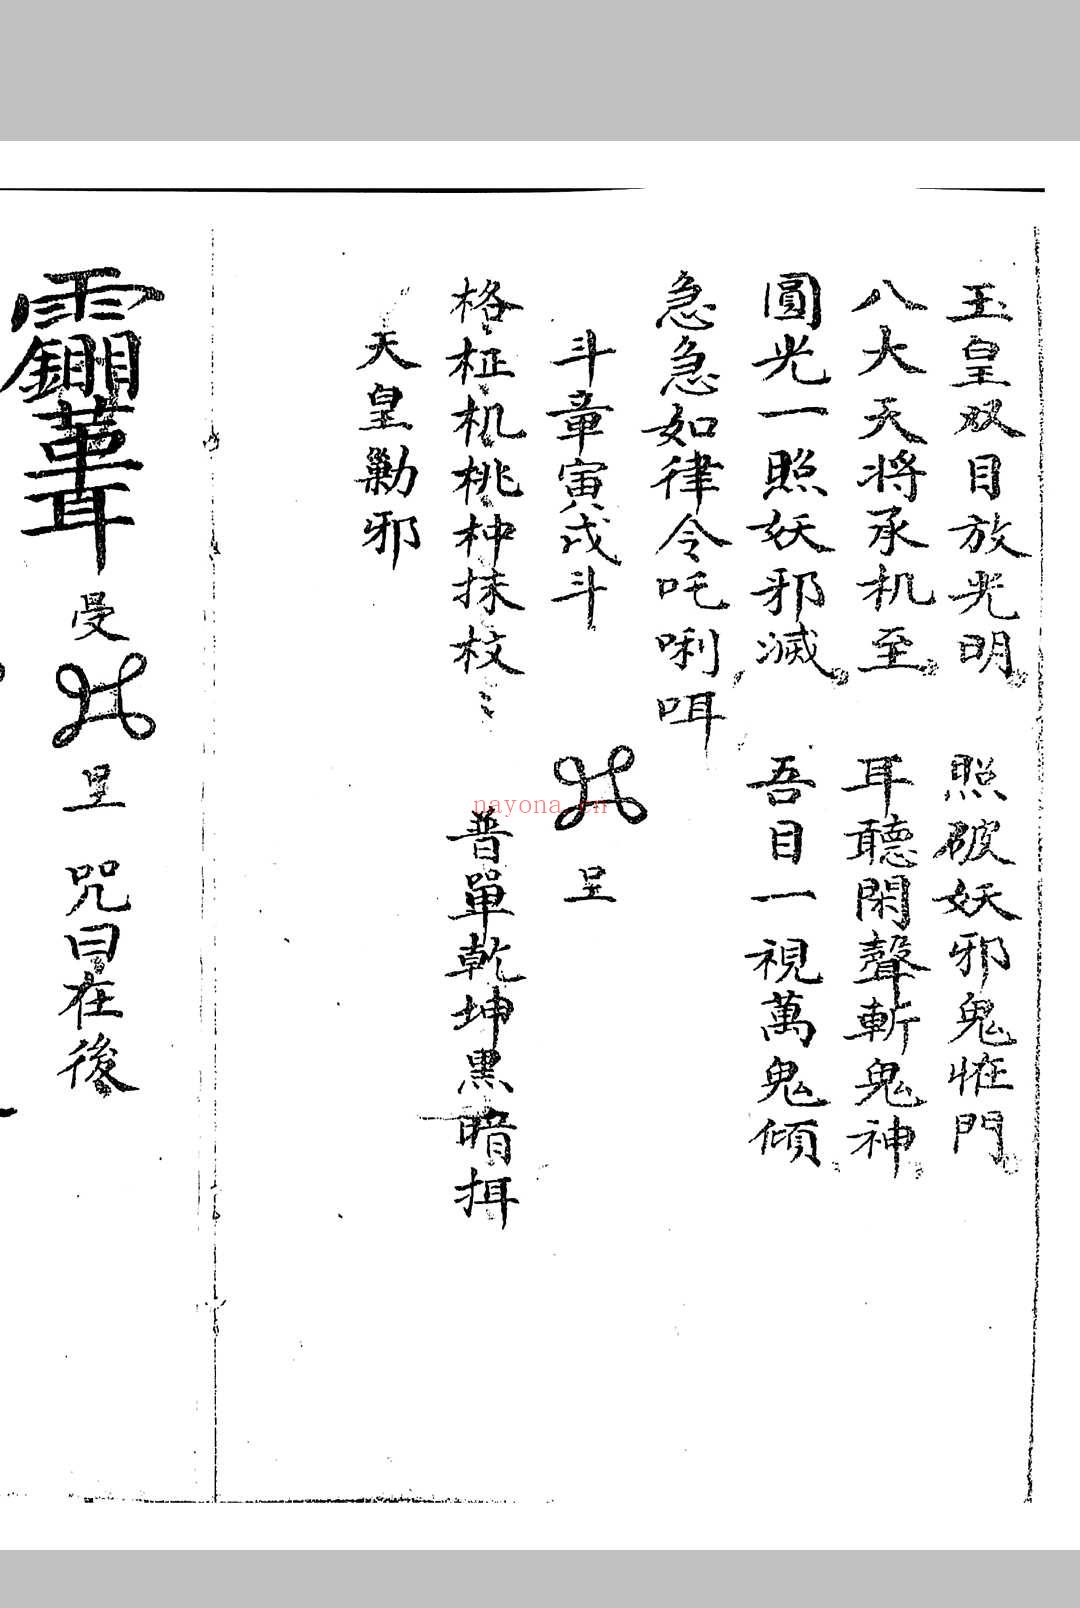 玉皇双目放光明 照破妖邪鬼怪門
八大天将承机至 耳聽閑聲斬鬼神
圓光一照妖邪滅 吾目一視萬鬼傾
急急如律令吒唎咡
斗章寅戌斗 呈
格柾机桃柛抹杸 普單乾坤黑暗挕
天皇勦邪
呈 咒曰在後
nayona.cn